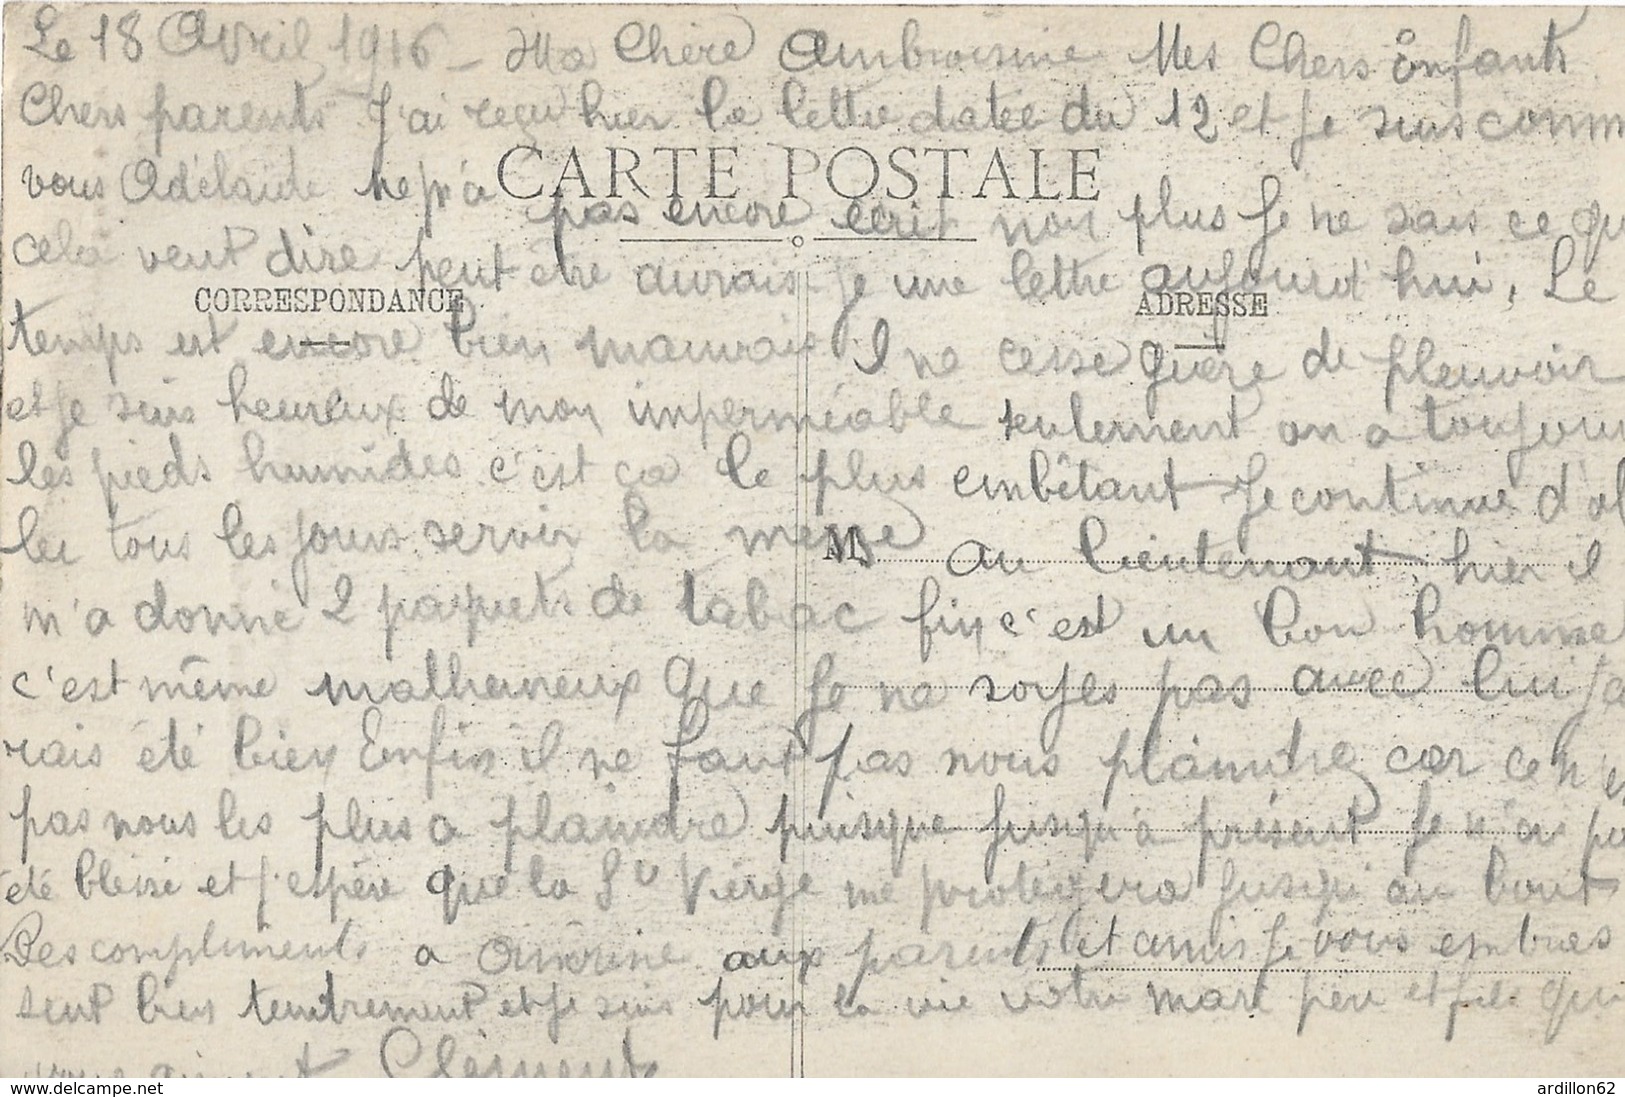 Le 18 Avril 1916 - Ma Chère Ambroisine Mes Chers Enfants
Chers parents J'ai reçu hier la lettre datée du 12 et Je suis comm
vous Adélaïde ne m'a pas encore écrit non plus Je ne sais ce qu
CARTE POSTALE
cela veut dire peut être aurais Je une lettre aujourd'hui, Le
CORRESPONDANCE
ADRESSE
temps est encore bien mauvais Il ne cesse guère de pleuvoir
et Je suis heureux de mon imperméable seulement on a toujour
les pieds humides c'est ça le plus embêtant Je continue d'al
ler tous les jours servir la messe au lieutenant, hier il
M
m'a donné 2 paquets de tabac fin c'est un bon homme
c'est même malheureux que Je ne soyes pas avec lui J'a
rais été bien Enfin il ne faut pas nous plaindre car ce n'es
pas nous les plus a plaindre puisque Jusqu'à présent Je n'ai pa
été blessé et J'espère que la Ste Vierge me protègera Jusqu'au bout
Des compliments a aux parents et amis Je vous embras
sent bien tendrement et Je suis pour la vie votre mari père et fils qui
vous aiment Clément
ardillon62
www.delcampe.net